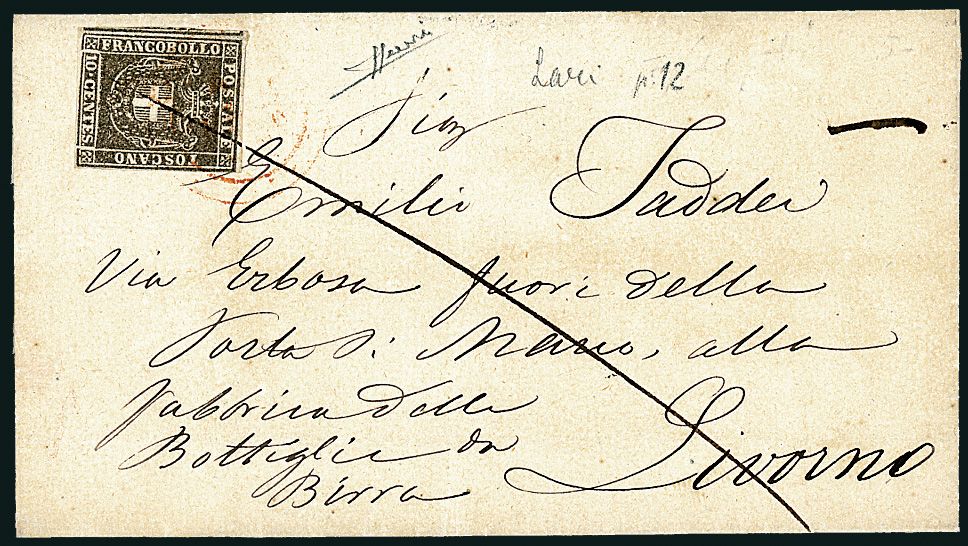 FRANCOBOLLO
POSTALE
TOSCANO
10 CENTES
Lari p. 12
Sig
Emilio Taddei
Via Erbosa fuori della
Porta S. Marco, alla
Fabbrica delle
Bottiglie da
Birra
Livorno